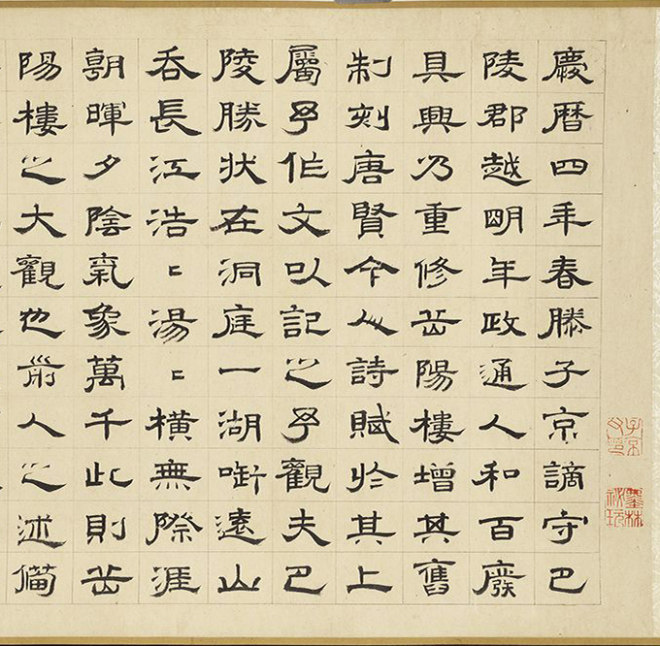 慶曆四年春滕子京謫守巴
陵郡越明年政通人和百廢
具興乃重修岳陽樓增其舊
制刻唐賢今人詩賦於其上
屬予作文以記之予觀夫巴
陵勝狀在洞庭一湖銜遠山
吞長江浩〻湯〻橫無際涯
朝暉夕陰氣象萬千此則岳
陽樓之大觀也前人之述備
子京父印
墨林秘玩